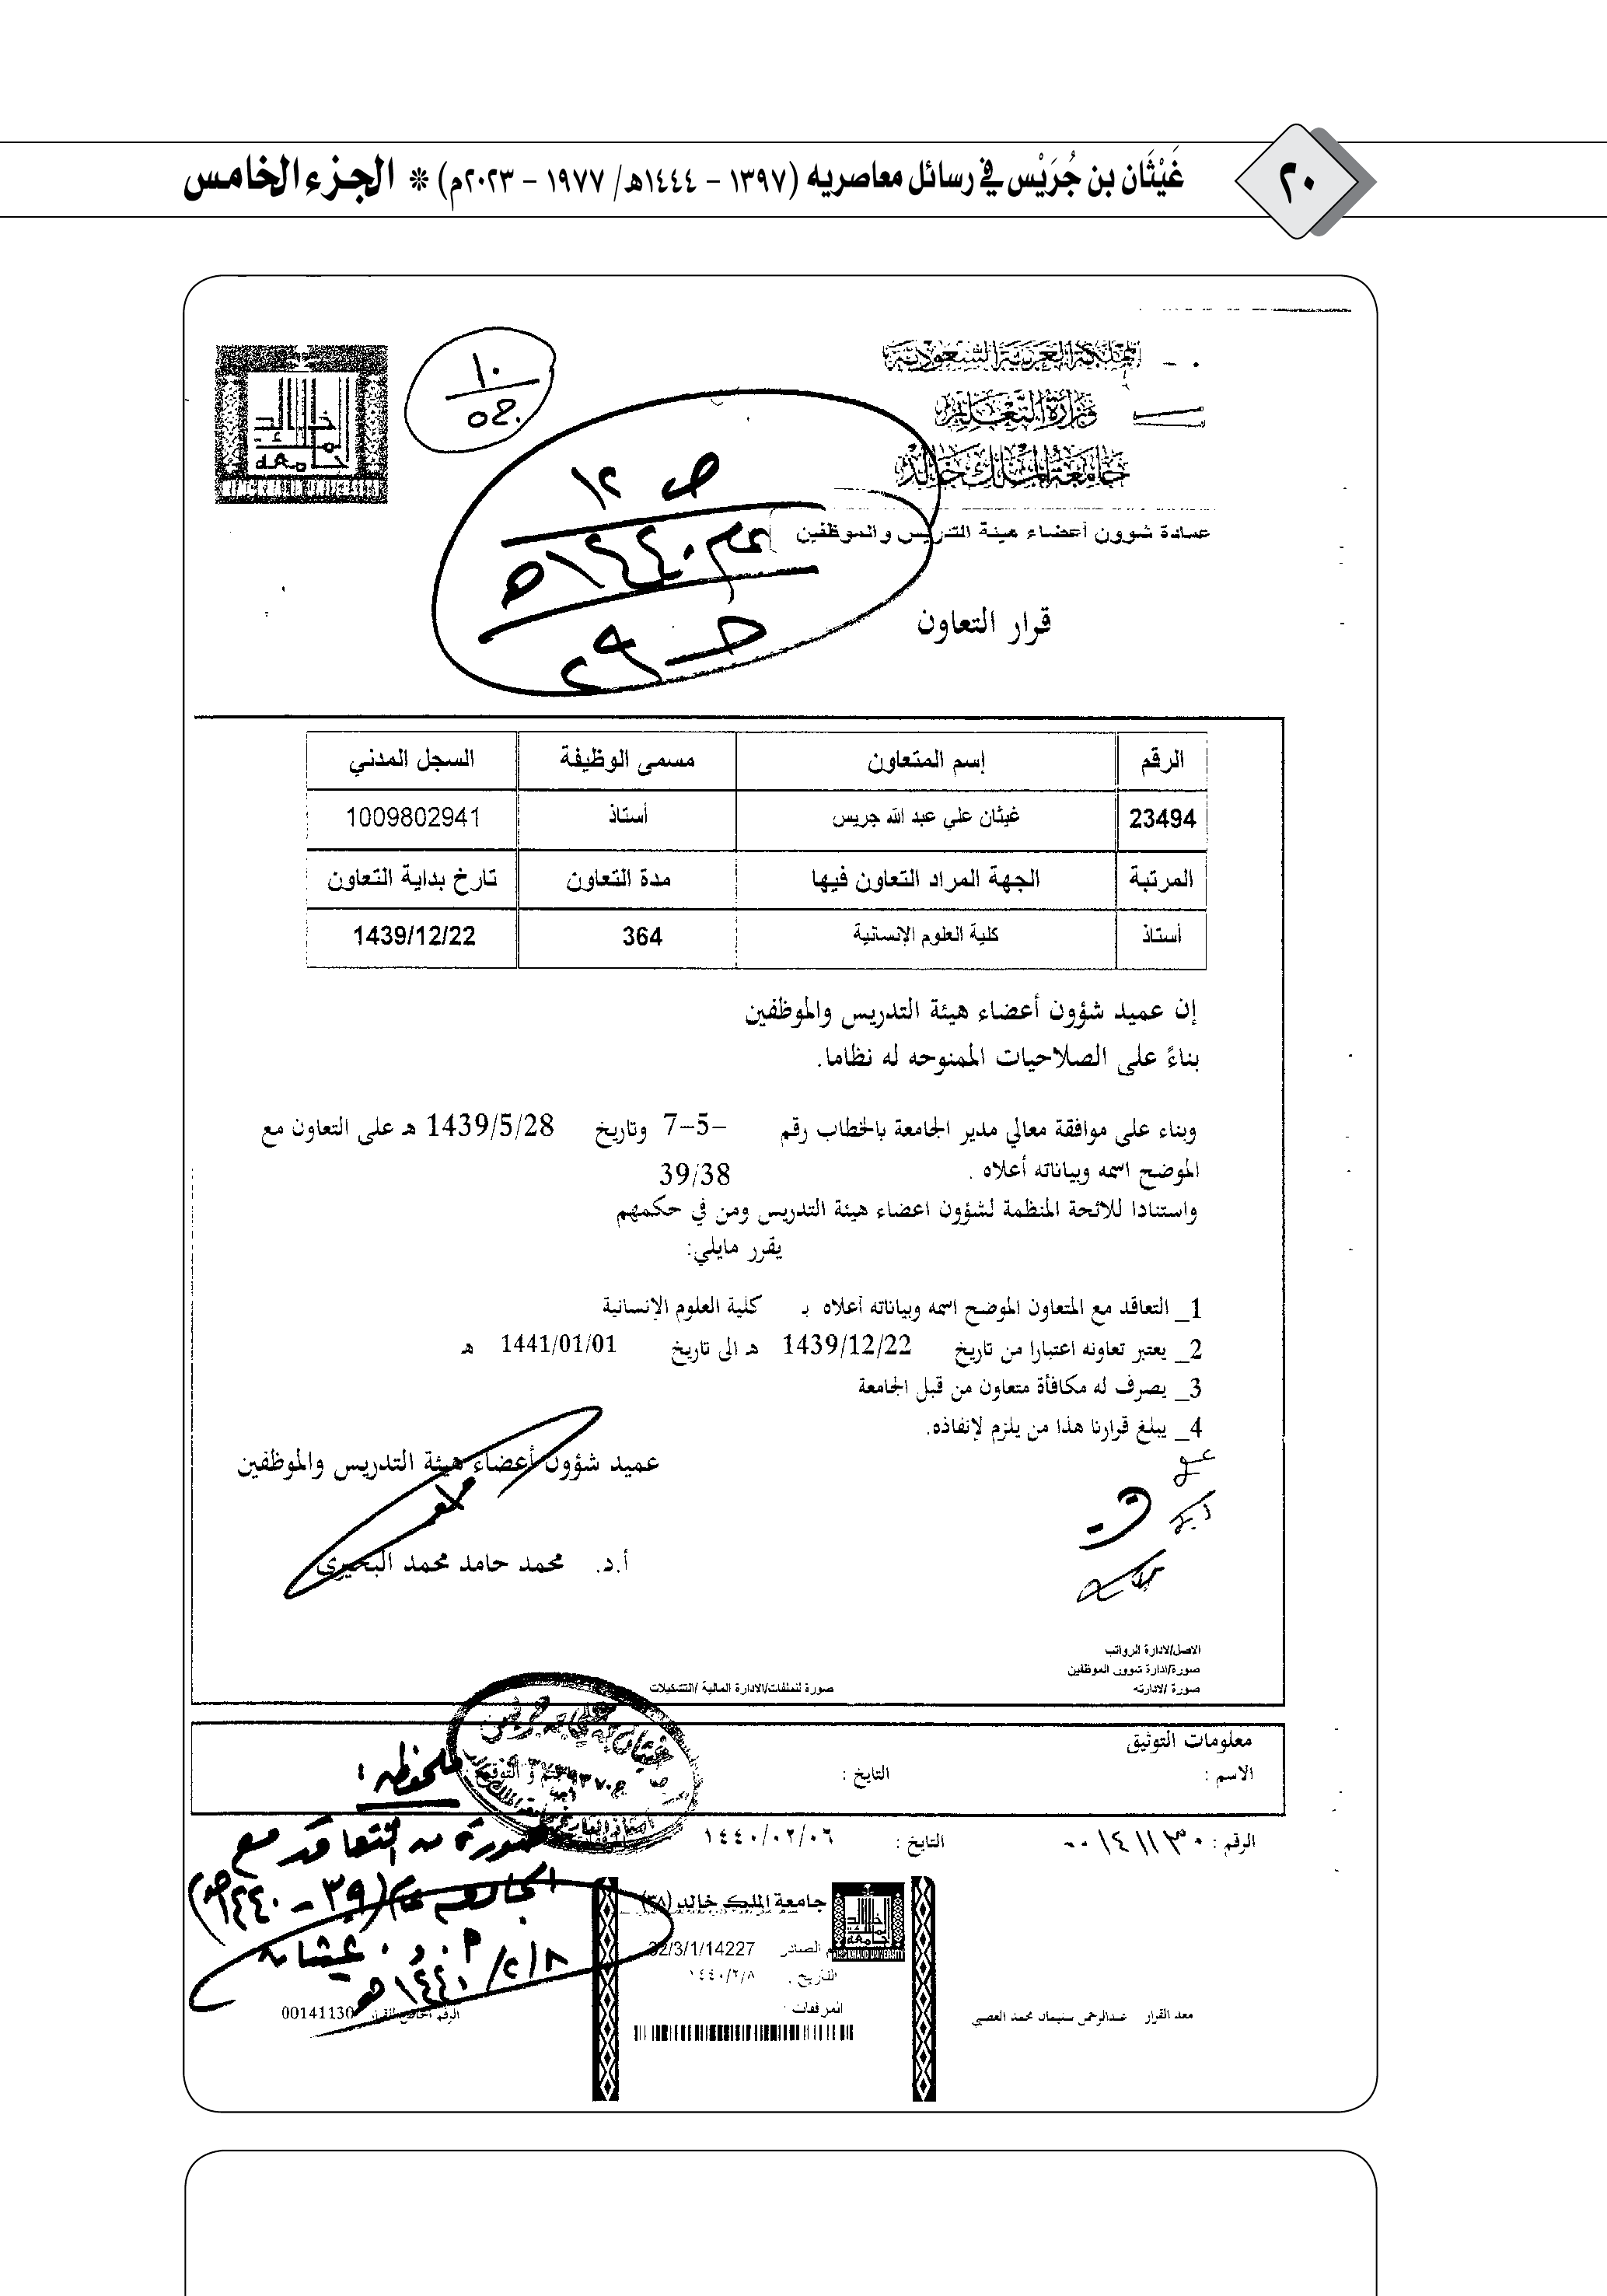 ٢٠
غَيْثَان بن جُرَيْس في رسائل معاصريه (١٣٩٧ - ١٤٤٤هـ/ ١٩٧٧ - ٢٠٢٣م) * الجزء الخامس
المملكة العربية السعودية
وزارة التعليم
جامعة الملك خالد
KING KHALID UNIVERSITY
عمادة شوون أعضاء هيئة التدريس والموظفين
ص ١٢
١٤٤٠هـ
قرار التعاون
الرقم إسم المتعاون مسمى الوظيفة السجل المدني
23494 غيثان علي عبد الله جريس أستاذ 1009802941
المرتبة الجهة المراد التعاون فيها مدة التعاون تارخ بداية التعاون
أستاذ كلية العلوم الإنسانية 364 1439/12/22
إن عميد شؤون أعضاء هيئة التدريس والموظفين
بناءً على الصلاحيات الممنوحه له نظاما.
وبناء على موافقة معالي مدير الجامعة بالخطاب رقم 7-5- وتاريخ 1439/5/28 هـ على التعاون مع
الموضح اسمه وبياناته أعلاه . 39/38
واستنادا للائحة المنظمة لشؤون اعضاء هيئة التدريس ومن في حكمهم
يقرر مايلي:
1_ التعاقد مع المتعاون الموضح اسمه وبياناته أعلاه بـ كلية العلوم الإنسانية
2_ يعتبر تعاونه اعتبارا من تاريخ 1439/12/22 هـ الى تاريخ 1441/01/01 هـ
3_ يصرف له مكافأة متعاون من قبل الجامعة
4_ يبلغ قرارنا هذا من يلزم لإنفاذه.
عميد شؤون أعضاء هيئة التدريس والموظفين
أ.د. محمد حامد محمد البحيري
الاصل/لادارة الرواتب
صورة/ادارة شوون الموظفين
صورة /لادارته
صورة لملفات/الادارة المالية /التشكيلات
معلومات التوثيق
الاسم : التاريخ :
الرقم : ٠٠١٤١١٣٠ التاريخ : ١٤٤٠/٠٢/٠٦
ملحوظه :
صورة من التعاقد مع
الجامعه عام (٣٩ - ١٤٤٠هـ)
أ . د . غيثان
٨ / ٢ / ١٤٤٠هـ
جامعة الملك خالد (٣٨)
KING KHALID UNIVERSITY
الصادر 32/3/1/14227
التاريخ . ١٤٤٠/٢/٨
المرفقات :
معد القرار عبدالرحمن سليمان محمد العصبي
الرقم الخاص بالقرار 00141130